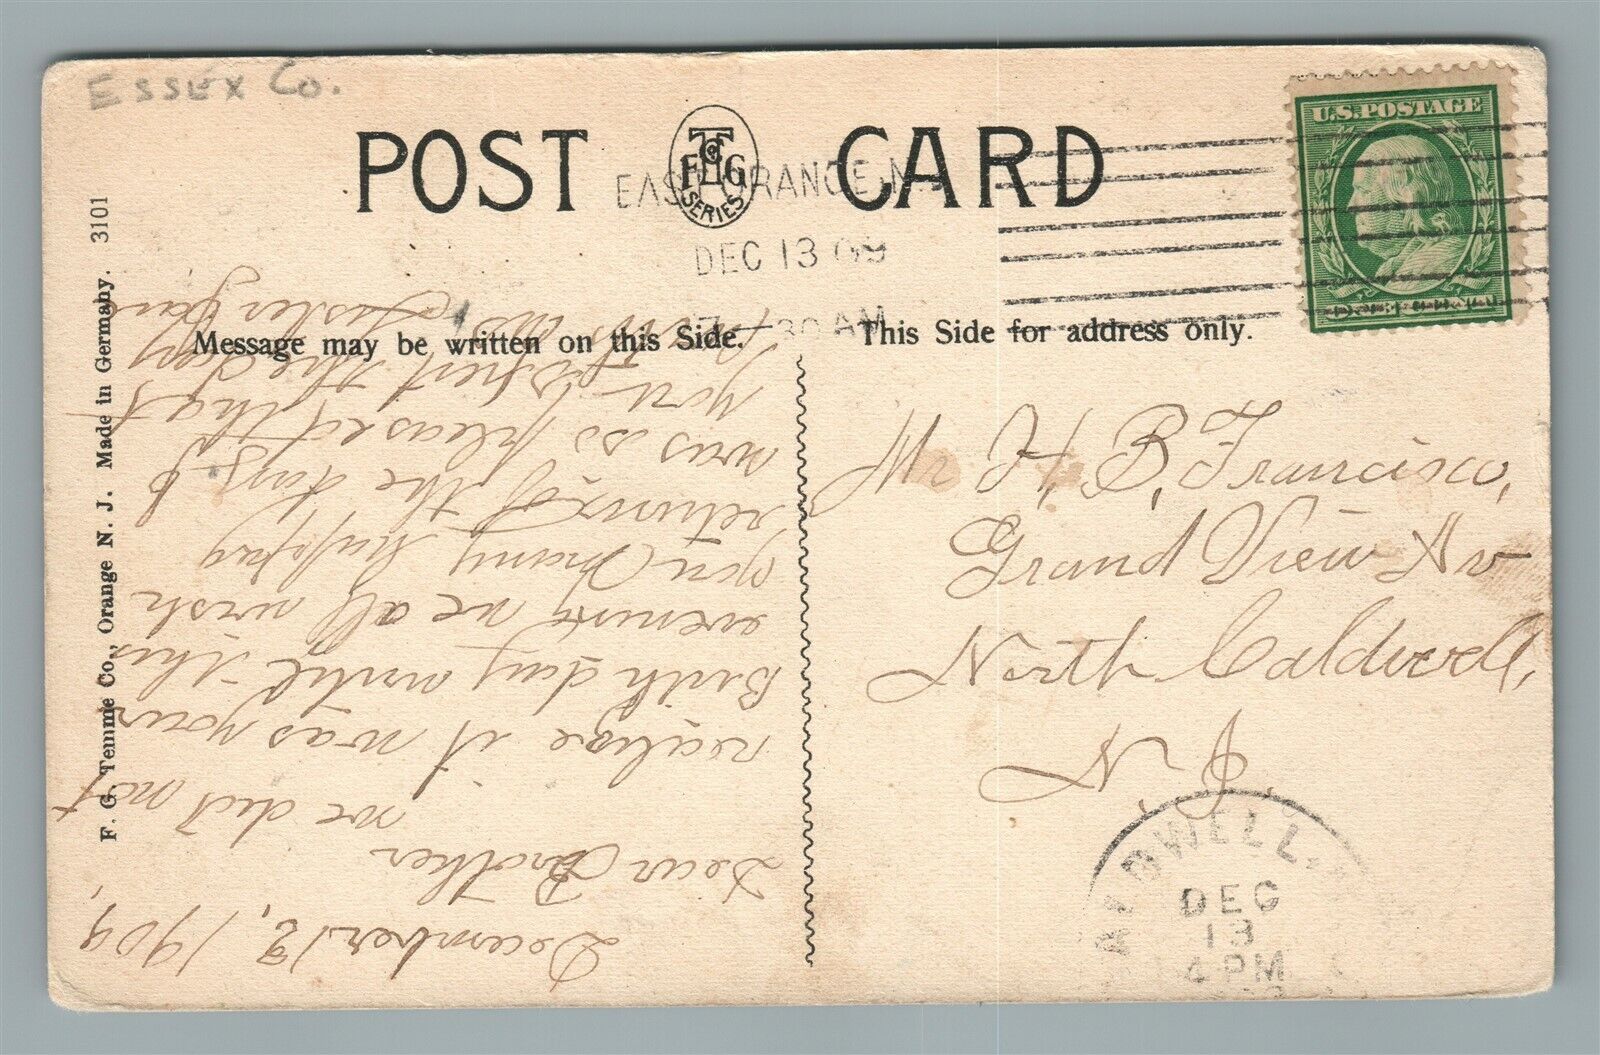 ESSEX Co.
POST CARD
F T Co G
SERIES
EAST ORANGE, N.
DEC 13 09
7 - 30 AM
U.S. POSTAGE
Message may be written on this Side.
This Side for address only.
F. G. Temme Co., Orange N. J. Made in Germany. 3101
Mr H. B. Francisco,
Grand View Av
North Caldwell,
N. J.
CALDWELL,
DEC
13
4 PM
December 12, 1909,
Dear Brother
we did not
realize it was your
Birth day until this
evening we all wish
you many happy
returns of the day
was so pleased that
you spent the day
with us